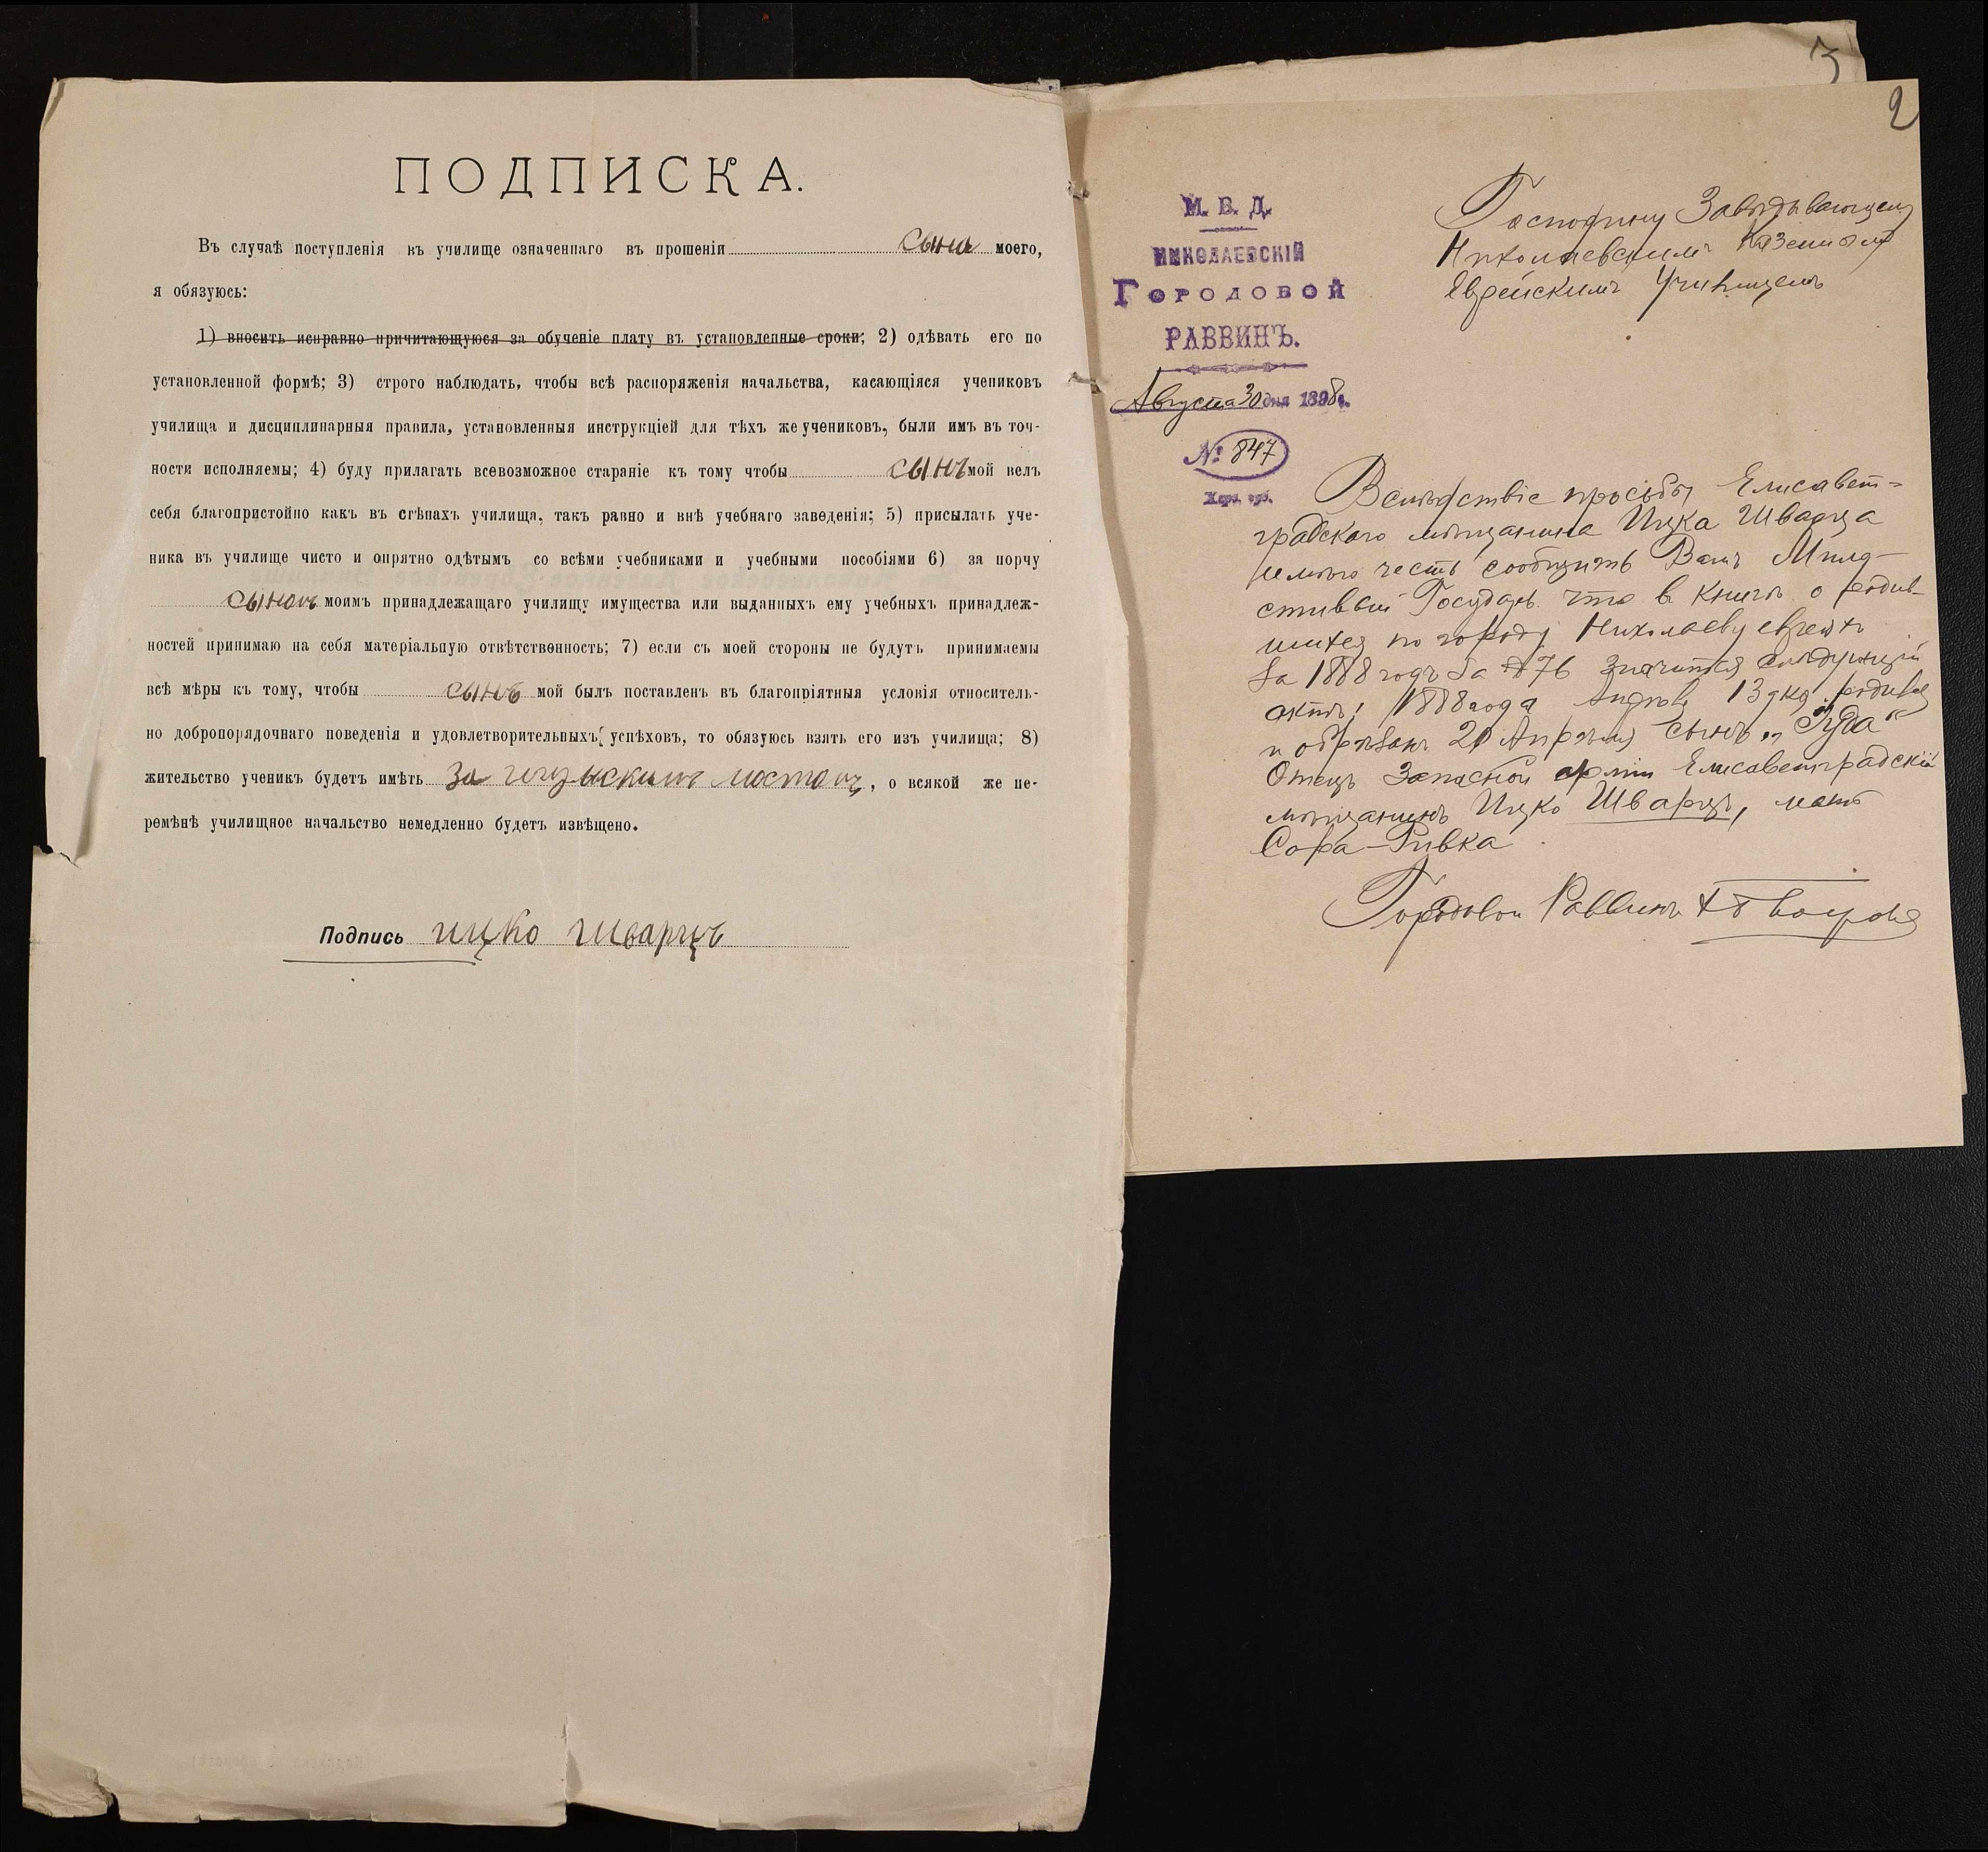 ПОДПИСКА.
Въ случаѣ поступленія къ училище означеннаго въ прошеніи сына моего,
я обязуюсь:
1) вносить исправно причитающуюся за обученіе плату въ установленные сроки; 2) одѣвать его по
установленной формѣ; 3) строго наблюдать, чтобы всѣ распоряженія начальства, касающіяся учениковъ
училища и дисциплинарныя правила, установленныя инструкціей для тѣхъ же учениковъ, были имъ въ точ-
ности исполняемы; 4) буду прилагать всевозможное стараніе къ тому чтобы сынъ мой велъ
себя благопристойно какъ въ стѣнахъ училища, такъ равно и внѣ учебнаго заведенія; 5) присылать уче-
ника въ училище чисто и опрятно одѣтымъ со всѣми учебниками и учебными пособіями 6) за порчу
сыномъ моимъ принадлежащаго училищу имущества или выданныхъ ему учебныхъ принадлеж-
ностей принимаю на себя матеріальную отвѣтственность; 7) если съ моей стороны не будутъ принимаемы
всѣ мѣры къ тому, чтобы сынъ мой былъ поставленъ въ благопріятныя условія относитель-
но добропорядочнаго поведенія и удовлетворительныхъ успѣховъ, то обязуюсь взять его изъ училища; 8)
жительство ученикъ будетъ имѣть за мостомъ, о всякой же пе-
ремѣнѣ училищное начальство немедленно будетъ извѣщено.
Подпись ицко шварцъ
3
2
М. В. Д.
НИКОЛАЕВСКІЙ
ГОРОДОВОЙ
РАВВИНЪ.
Августа 30 дня 1898 г.
№ 847
Херс. губ.
Господину Завѣдывающему
Николаевскимъ Казеннымъ
Еврейскимъ Училищемъ
Вслѣдствіе просьбы Елисавет-
градскаго мѣщанина Ицка Шварца
имѣю честь сообщить Вамъ Мило-
стивый Государь что в книгѣ о родив-
шихся по городу Николаеву евреяхъ
за 1888 годъ за № 76 значится слѣдующій
актъ: 1888 года Апрѣля 13 дня родился
и обрѣзанъ 20 Апрѣля сынъ „Іуда"
Отецъ Запасной арміи Елисаветградскій
мѣщанинъ Ицко Шварцъ, мать
Сора-Ривка
Городовой Раввинъ